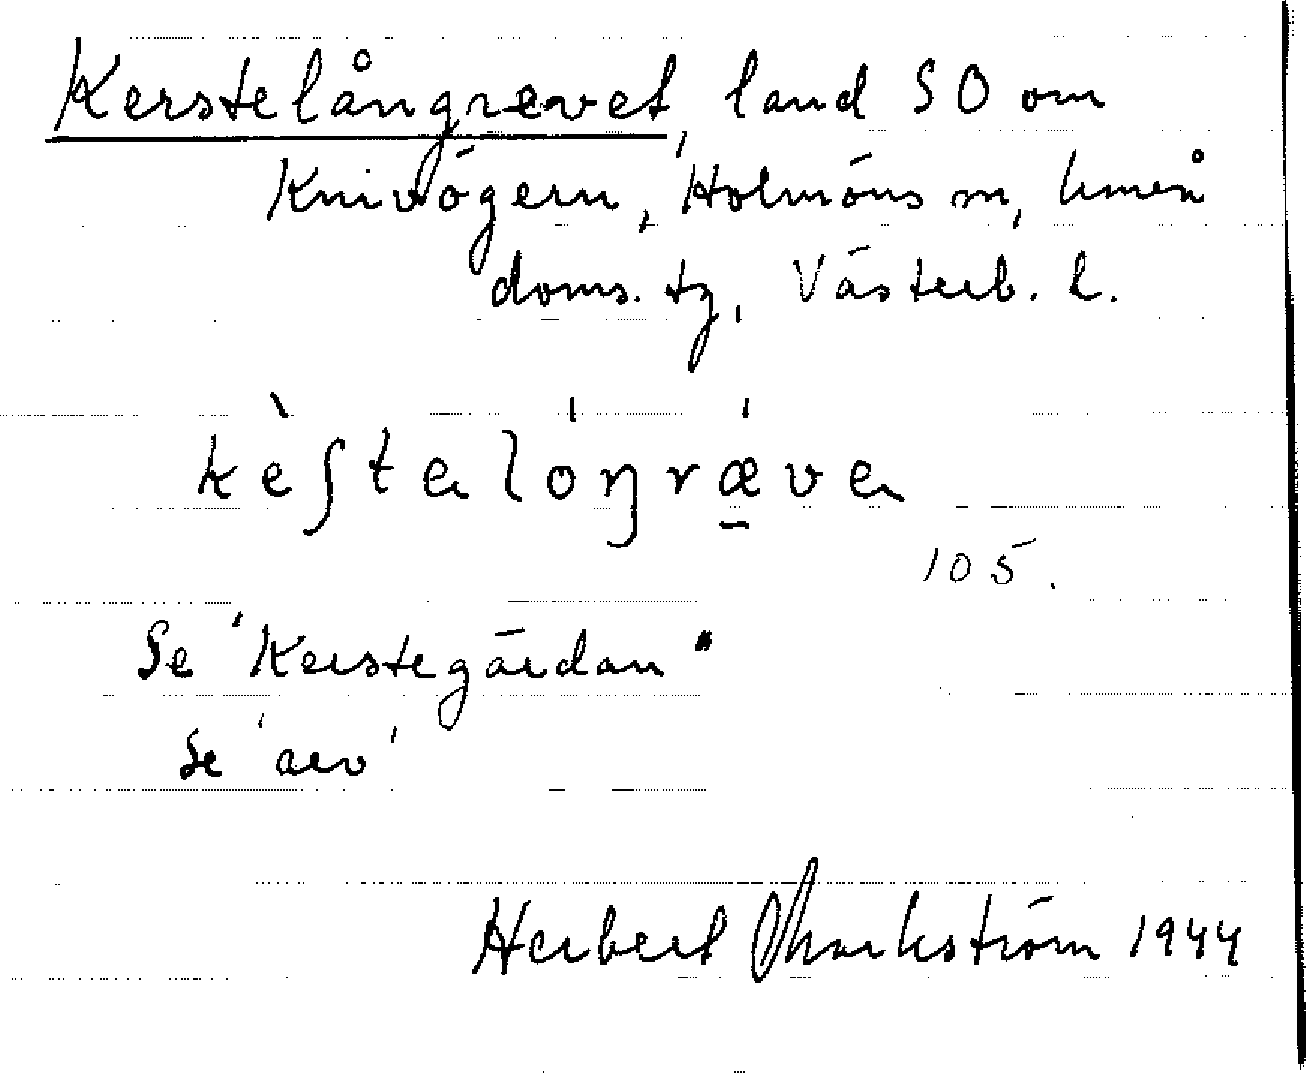 Kerstelångrevet, land SO om
Knivögern, Holmöns sn, Umeå
doms. tg, Västerb. l.
kèʃtalóŋrǽva
105.
Se "Kerstegärdan"
Se 'aev'
Herbert Markström 1944